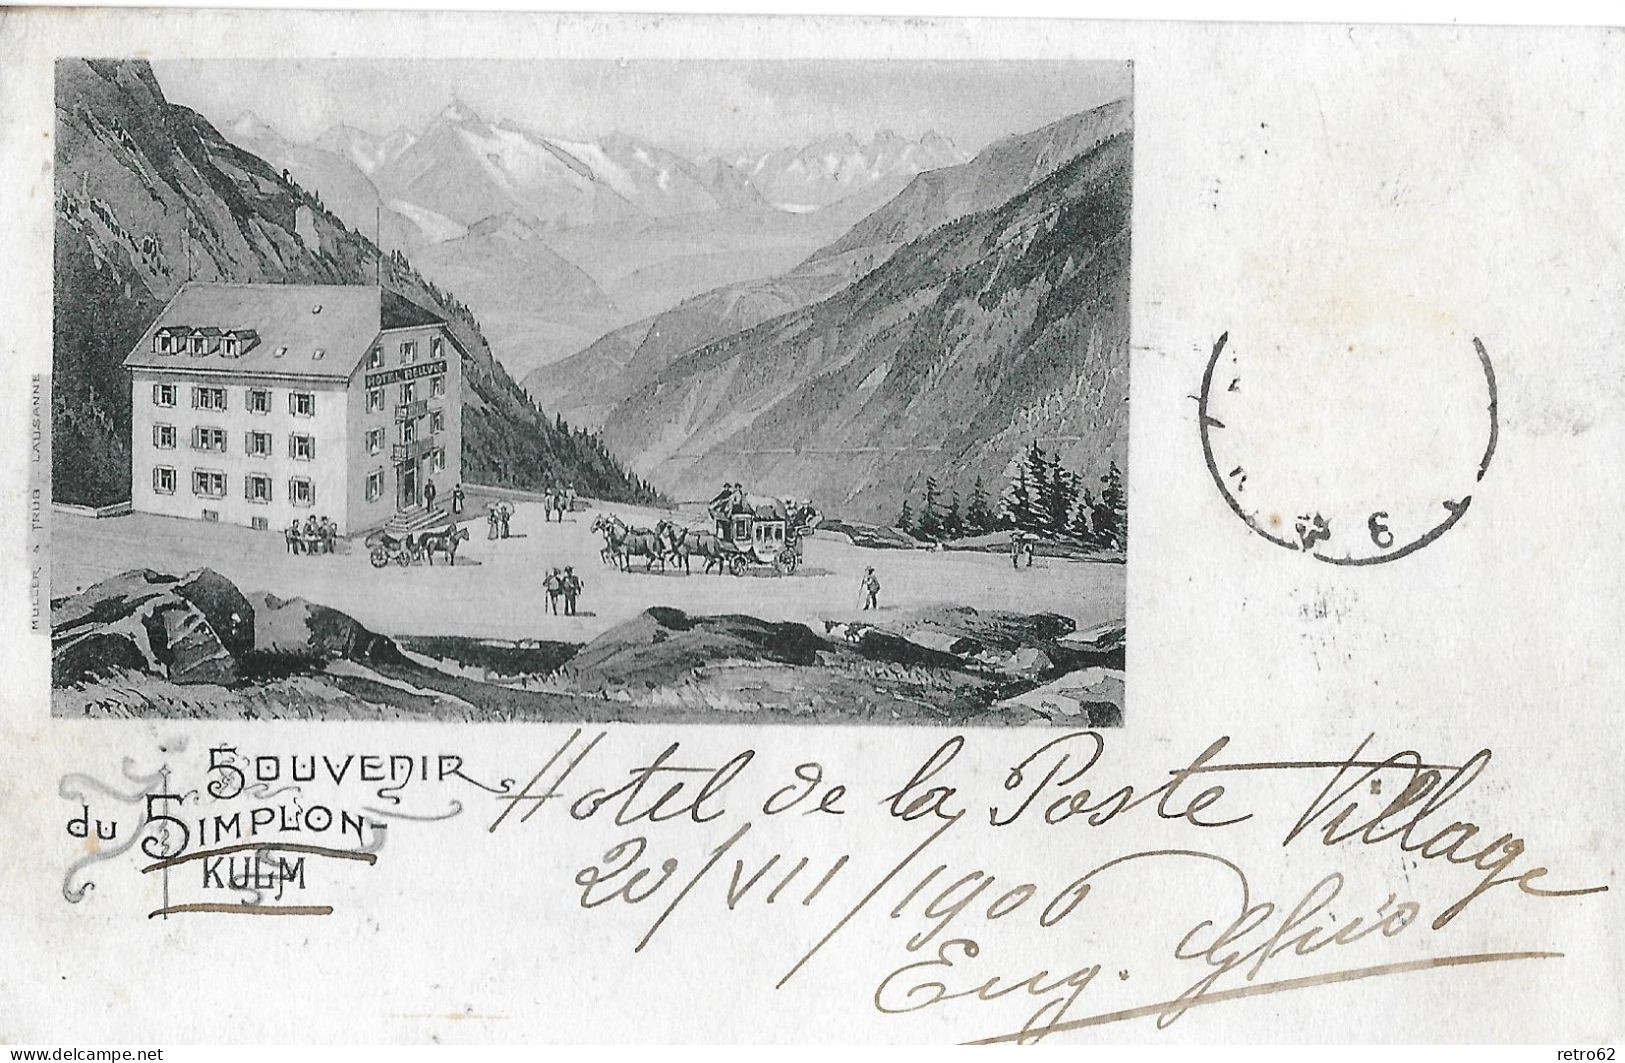 HOTEL BELLVUE
MÜLLER & TRÜB LAUSANNE
SOUVENIR
du SIMPLON-
KULM
Hotel de la Poste Village
20/VII/1906
Eug.
3
www.delcampe.net
retro62